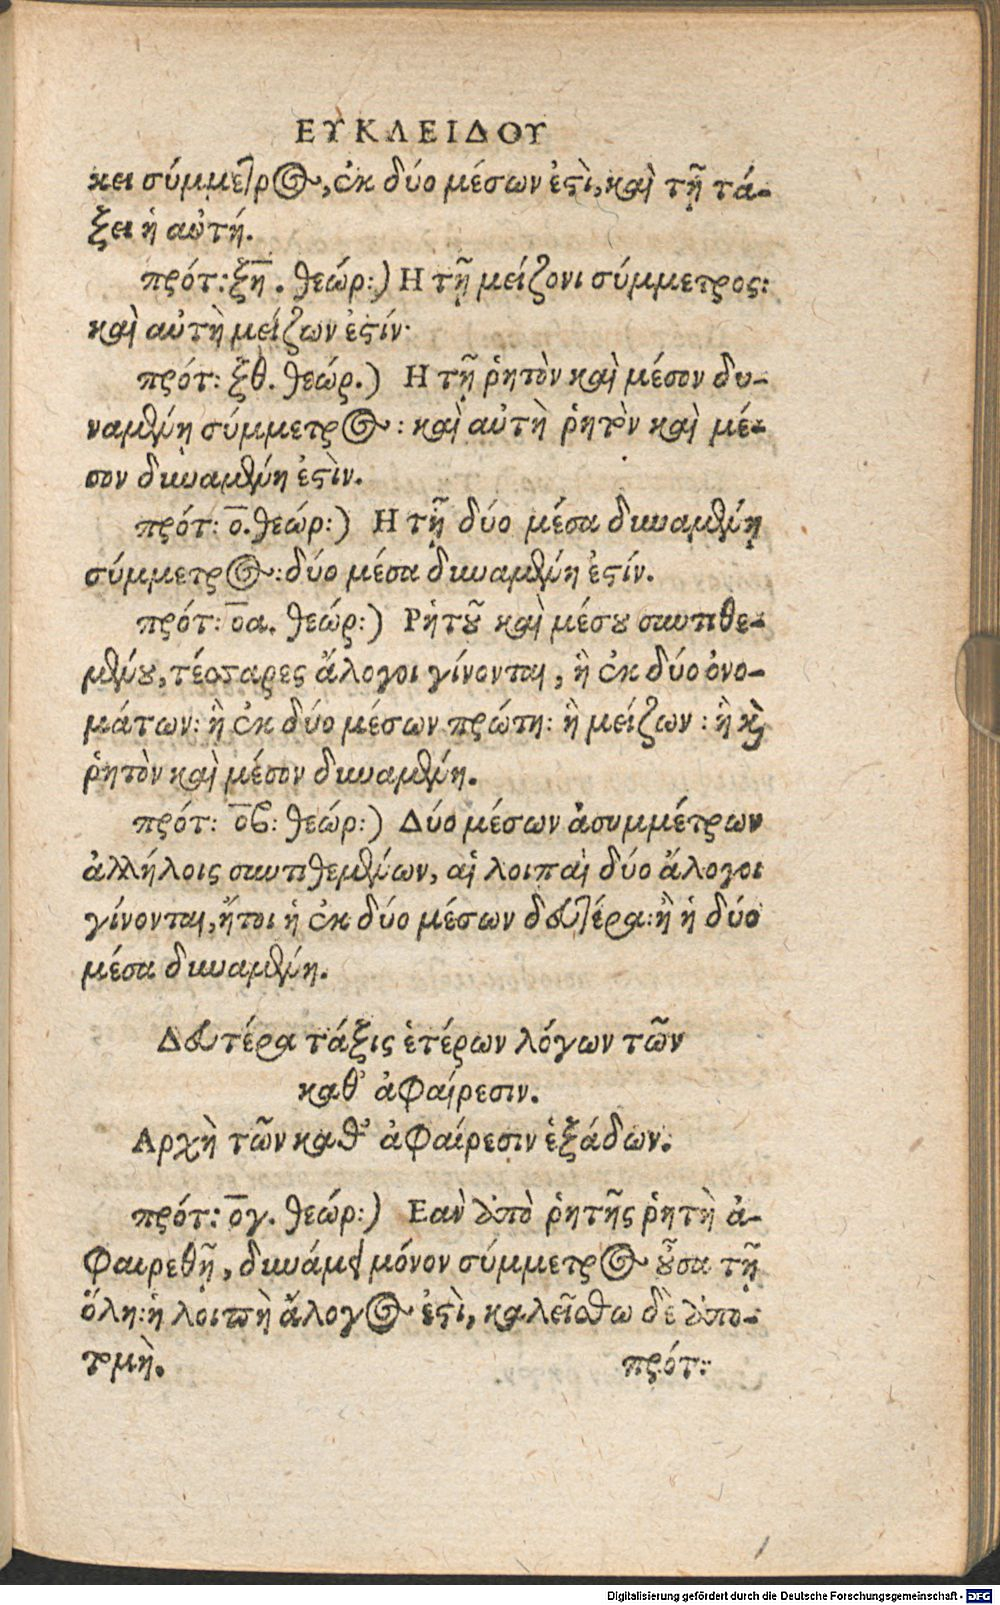 ΕΥΚΛΕΙΔΟΥ
κει σύμμετρος, ἐκ δύο μέσων ἐστὶ, καὶ τῇ τά-
ξει ἡ αὐτή.
πρότ: ξη. θεώρ:) Η τῇ μείζονι σύμμετρος:
καὶ αὐτὴ μείζων ἐστίν·
πρότ: ξθ. θεώρ.) Η τῇ ῥητὸν καὶ μέσον δυ-
ναμένῃ σύμμετρος: καὶ αὐτὴ ῥητὸν καὶ μέ-
σον δυναμένη ἐστὶν.
πρότ: ο. θεώρ:) Η τῇ δύο μέσα δυναμένῃ
σύμμετρος: δύο μέσα δυναμένη ἐστίν.
πρότ: οα. θεώρ:) Ρητοῦ καὶ μέσου συντιθε-
μένου, τέσσαρες ἄλογοι γίνονται, ἢ ἐκ δύο ὀνο-
μάτων: ἢ ἐκ δύο μέσων πρώτη: ἢ μείζων: ἢ καὶ
ῥητὸν καὶ μέσον δυναμένη.
πρότ: οβ: θεώρ:) Δύο μέσων ἀσυμμέτρων
ἀλλήλοις συντιθεμένων, αἱ λοιπαὶ δύο ἄλογοι
γίνονται, ἤτοι ἡ ἐκ δύο μέσων δευτέρα: ἢ ἡ δύο
μέσα δυναμένη.
Δευτέρα τάξις ἑτέρων λόγων τῶν
καθ' ἀφαίρεσιν.
Αρχὴ τῶν καθ' ἀφαίρεσιν ἑξάδων.
πρότ: ογ. θεώρ:) Εαν ἀπὸ ῥητῆς ῥητὴ ἀ-
φαιρεθῇ, δυνάμει μόνον σύμμετρος οὖσα τῇ
ὅλῃ: ἡ λοιπὴ ἄλογος ἐστὶ, καλείσθω δὲ ἀπο-
τομὴ. πρότ:
Digitalisierung gefördert durch die Deutsche Forschungsgemeinschaft - DFG